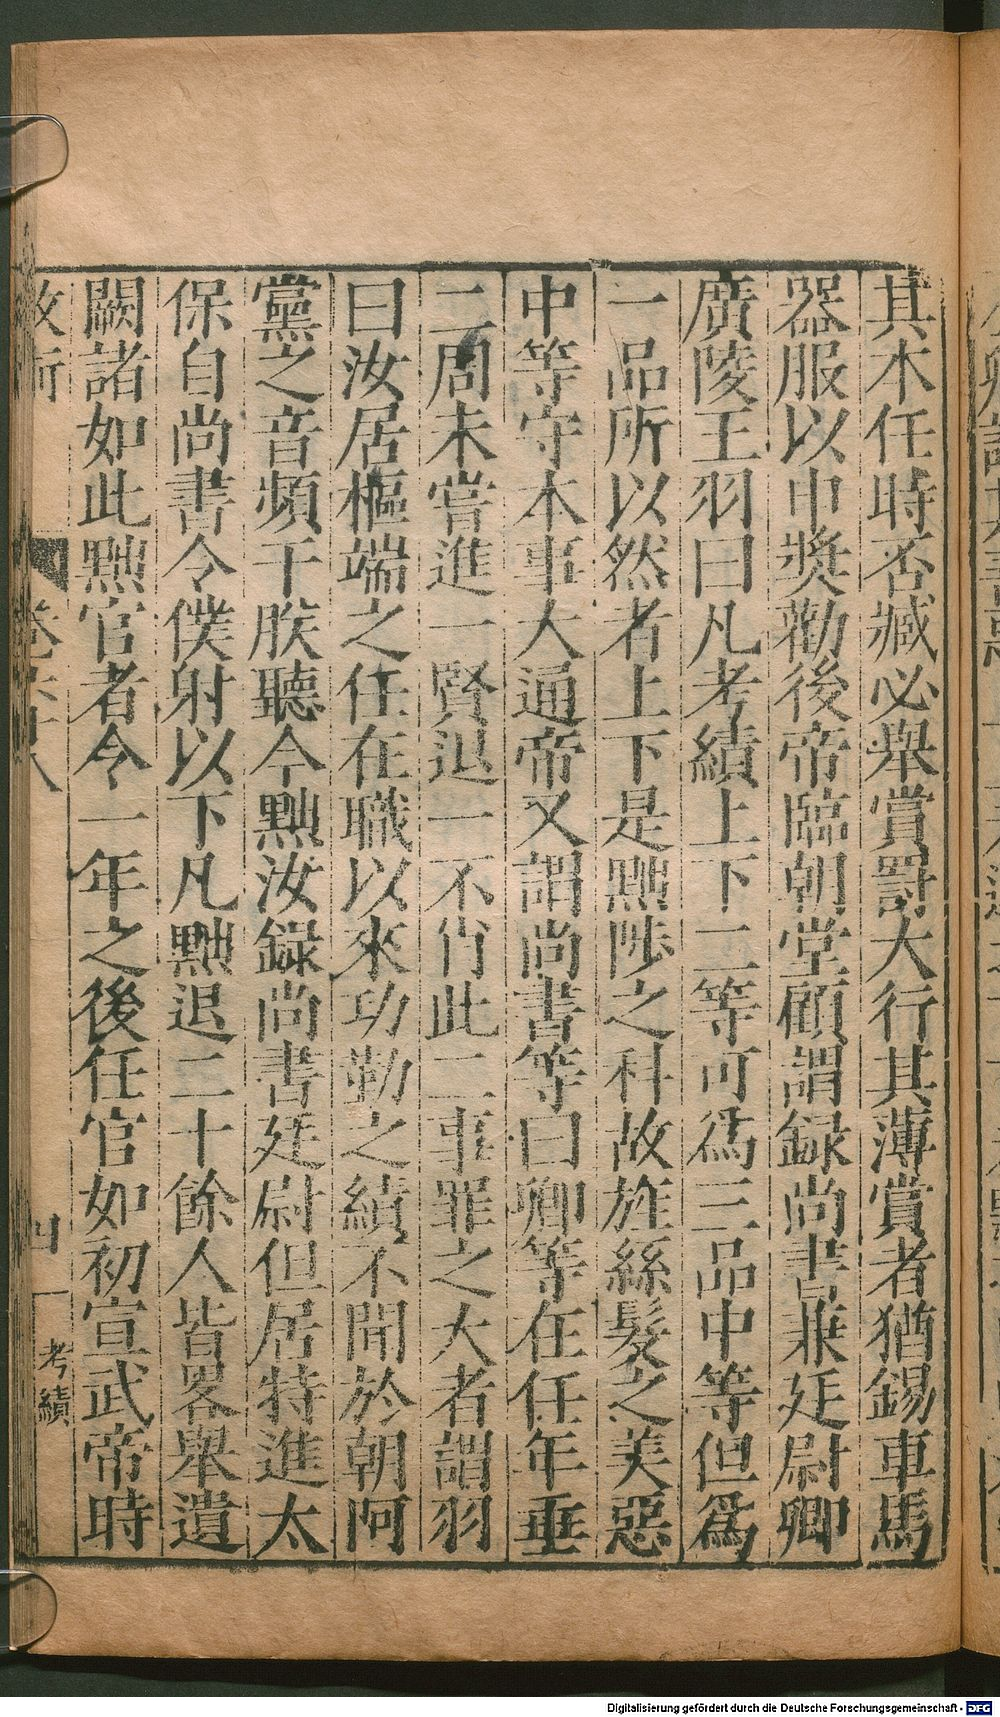 其本任時否臧必舉賞罰大行其薄賞者猶錫車馬
器服以申奬勸後帝臨朝堂顧謂録尚書兼廷尉卿
廣陵王羽曰凡考績上下二等可爲三品中等但爲
一品所以然者上下是黜陟之科故旌絲髮之美惡
中等守本事大通帝又謂尚書等曰卿等在任年垂
二周未嘗進一賢退一不肖此二事罪之大者謂羽
曰汝居樞端之任在職以來功勤之績不聞於朝阿
黨之音頻干朕聽今黜汝録尚書廷尉但居特進太
保自尚書令僕射以下凡黜退二十餘人皆畧舉遺
闕諸如此黜官者令一年之後任官如初宣武帝時
四 考績
Digitalisierung gefördert durch die Deutsche Forschungsgemeinschaft - DFG